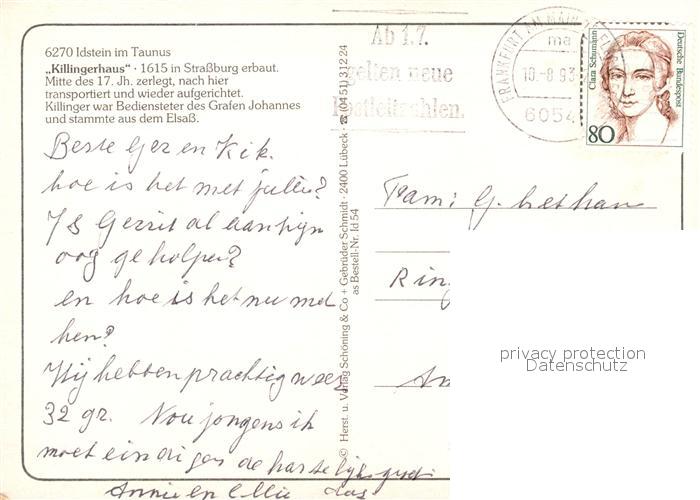 6270 Idstein im Taunus
„Killingerhaus" · 1615 in Straßburg erbaut.
Mitte des 17. Jh. zerlegt, nach hier
transportiert und wieder aufgerichtet.
Killinger war Bediensteter des Grafen Johannes
und stammte aus dem Elsaß.
Beste Ger en Kik.
hoe is het met jullie?
Is Gerrit al aan zijn
oog geholpen?
en hoe is het nu met
hen?
Wij hebben prachtig weer
32 gr. Nou jongens ik
moet eindigen de hartelijks groet
Annie en Ellie das
© Herst. u. Verlag Schöning & Co + Gebrüder Schmidt · 2400 Lübeck · ☎ (0451) 3 12 24
as Bestell-Nr. Id 54
Ab 1.7.
gelten neue
Postleitzahlen.
FRANKFURT AM MAIN
ma
10.-8.93
6054
Clara Schumann
Deutsche Bundespost
80
Fam: G.
Ring
privacy protection
Datenschutz